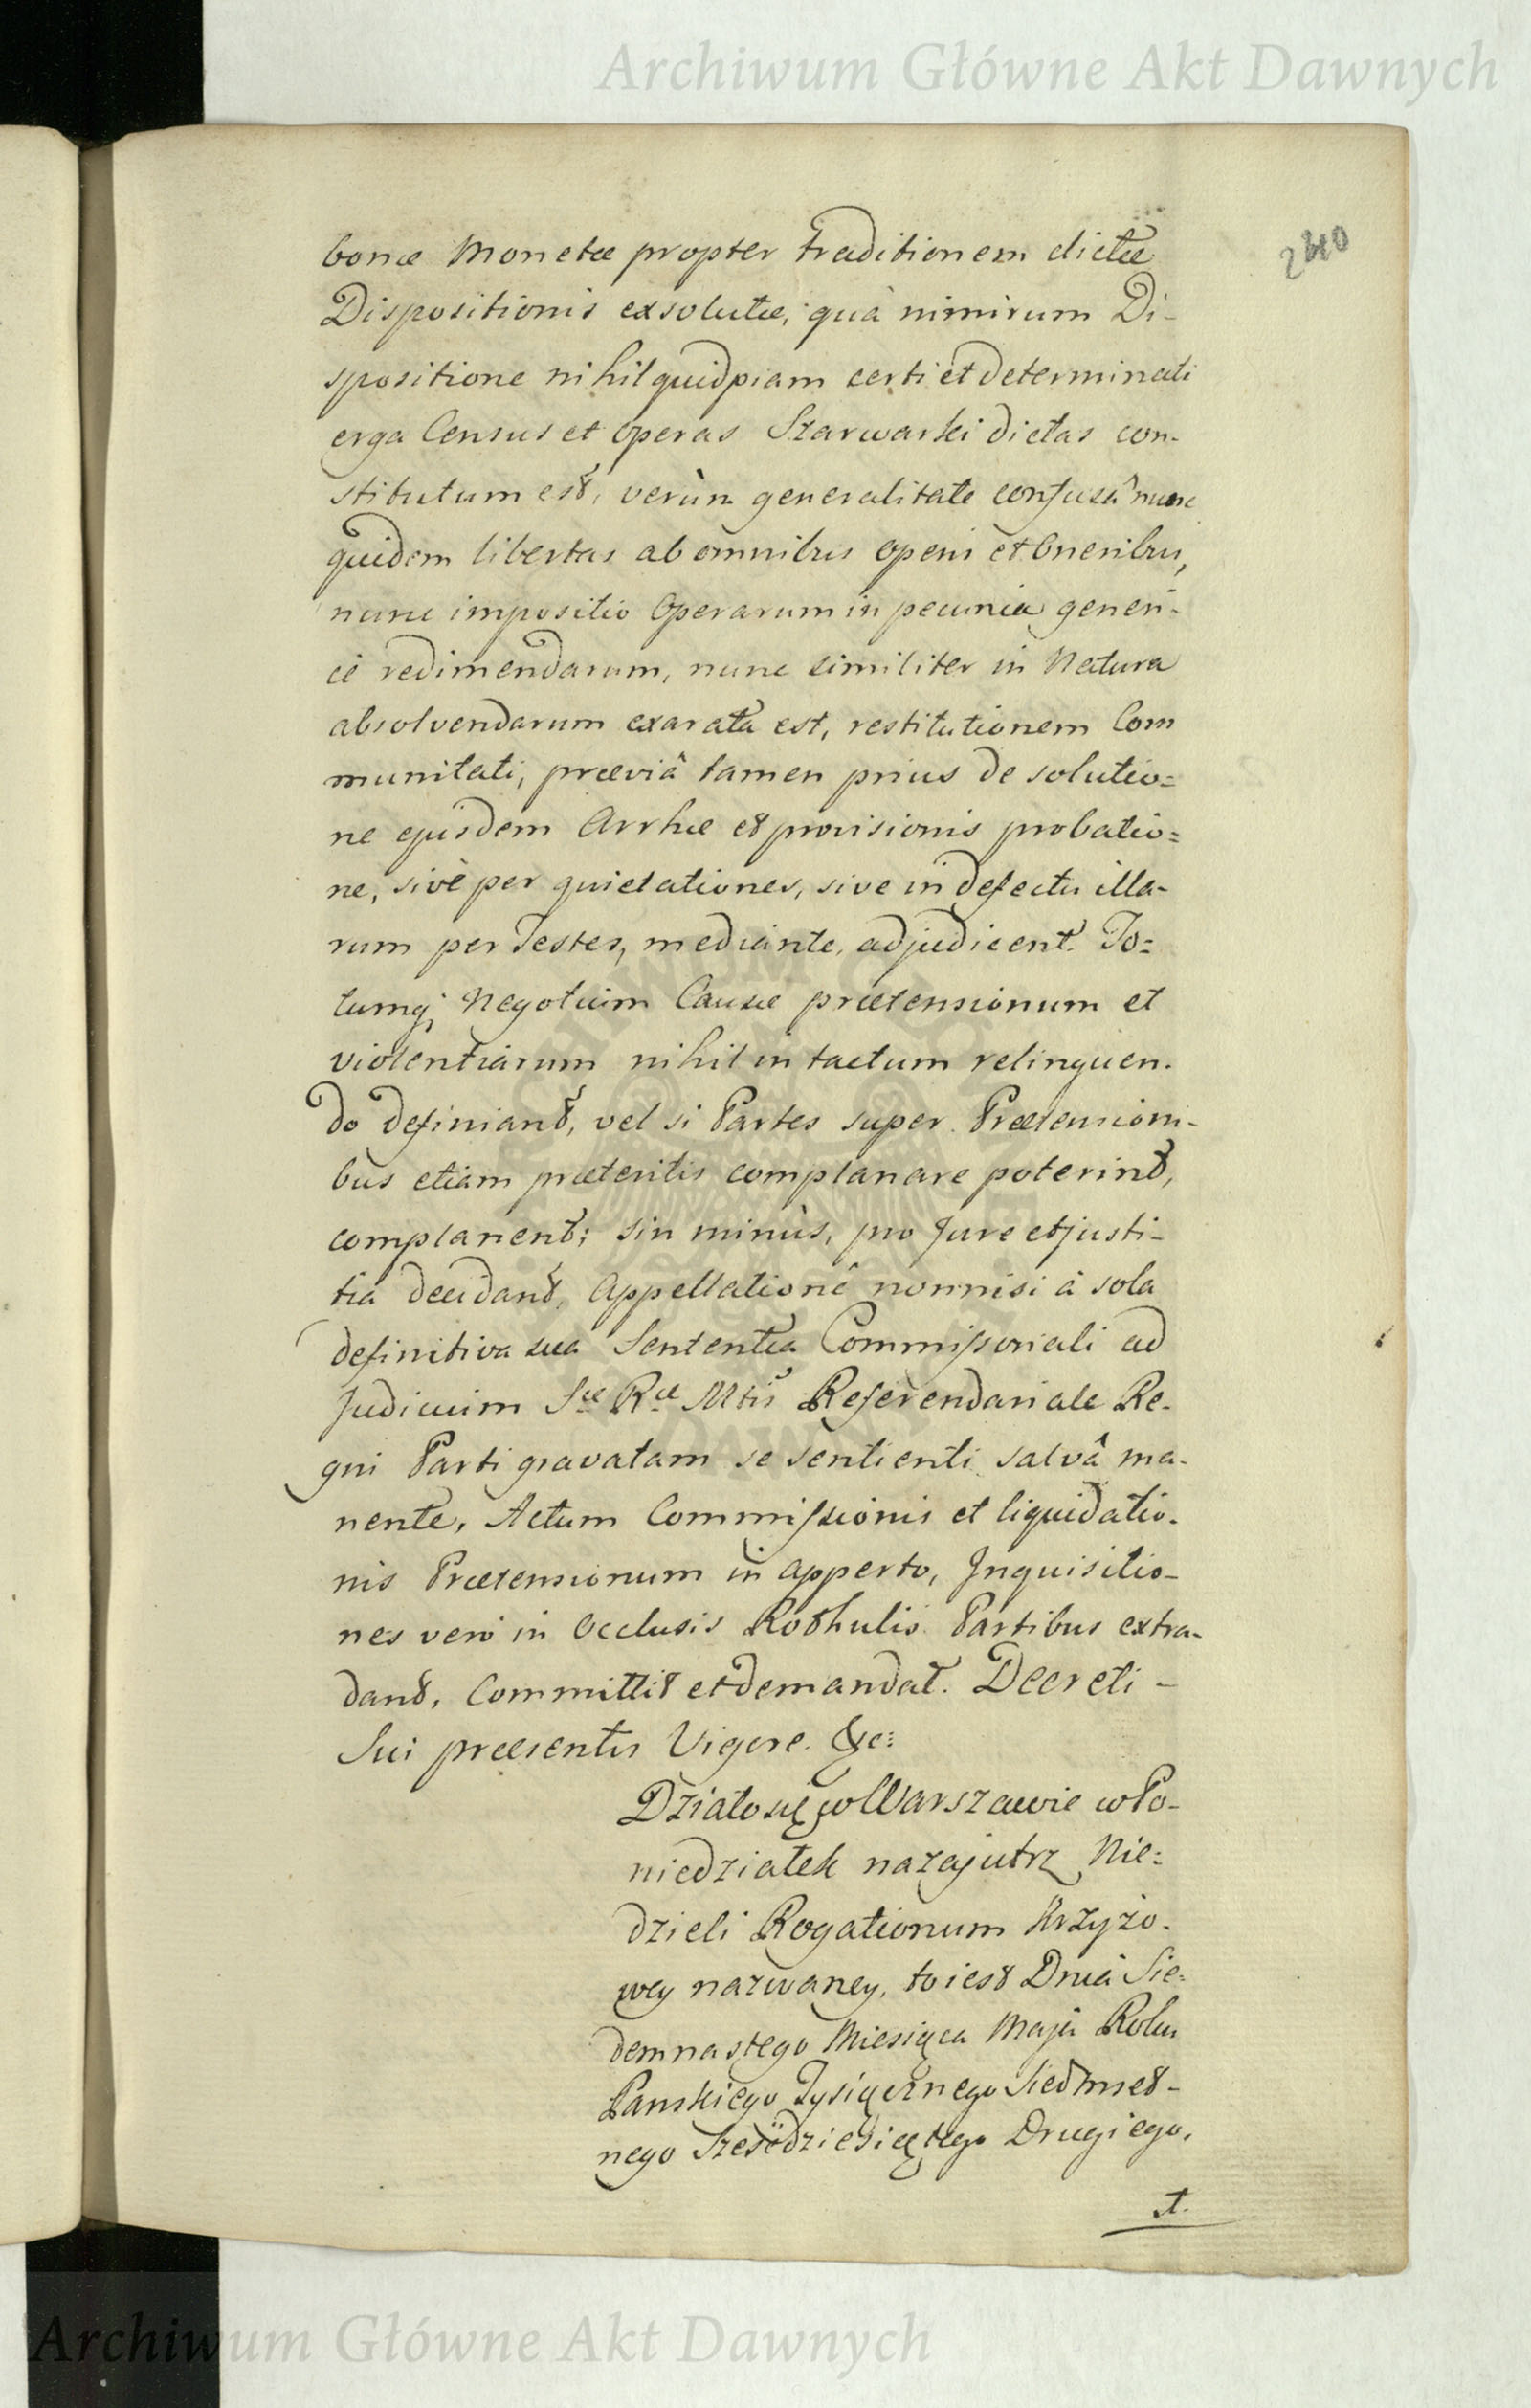 Archiwum Główne Akt Dawnych
240
bonæ Monetæ propter traditionem dictæ
Dispositionis exsolutæ, quà nimirum Di-
spositione nihil quidpiam certi et determinati
erga Census et operas Szarwarki dictas con-
stitutum est, verùm generalitate confusâ nunc
quidem libertas ab omnibus operis et Oneribus,
nunc impositio Operarum in pecunia generi-
cè redimendarum, nunc similiter in Natura
absolvendarum exarata est, restitutionem Com
munitati, præviâ tamen prius de solutio=
ne ejusdem Arrhæ et provisionis probatio=
ne, sivè per quietationes, sive in defectu illa-
rum per Testes, mediante, adjudicent. To=
tumq; Negotium Causæ prætensionum et
violentiarum nihil intactum relinquen-
do definiant, vel si Partes super Prætensioni-
bus etiam præteritis complanare poterint,
complanent; sin minùs, pro Jure et justi-
tia decidant, Appellationè nonnisi à sola
definitiva sua Sententia Commissoriali ad
Judicium Sæ Ræ Mtis Referendariale Re-
gni Parti gravatam se sentienti salvâ ma-
nente. Actum Commissionis et liquidatio-
nis Prætensionum in apperto, Inquisitio-
nes verò in Occlusis Rothulis Partibus extra-
dant, Committit et demandat. Decreti -
Sui præsentis Vigore. &c:
Działo się w Warszawie w Po-
niedziałek nazajutrz Nie=
dzieli Rogationum Krzyżo-
wey nazwaney, to iest Dnia Sie=
demnastego Miesiąca Maja Roku
Panskiego Tysiącznego Siedmset-
nego Szesćdziesiątego Drugiego.
A.
Archiwum Główne Akt Dawnych